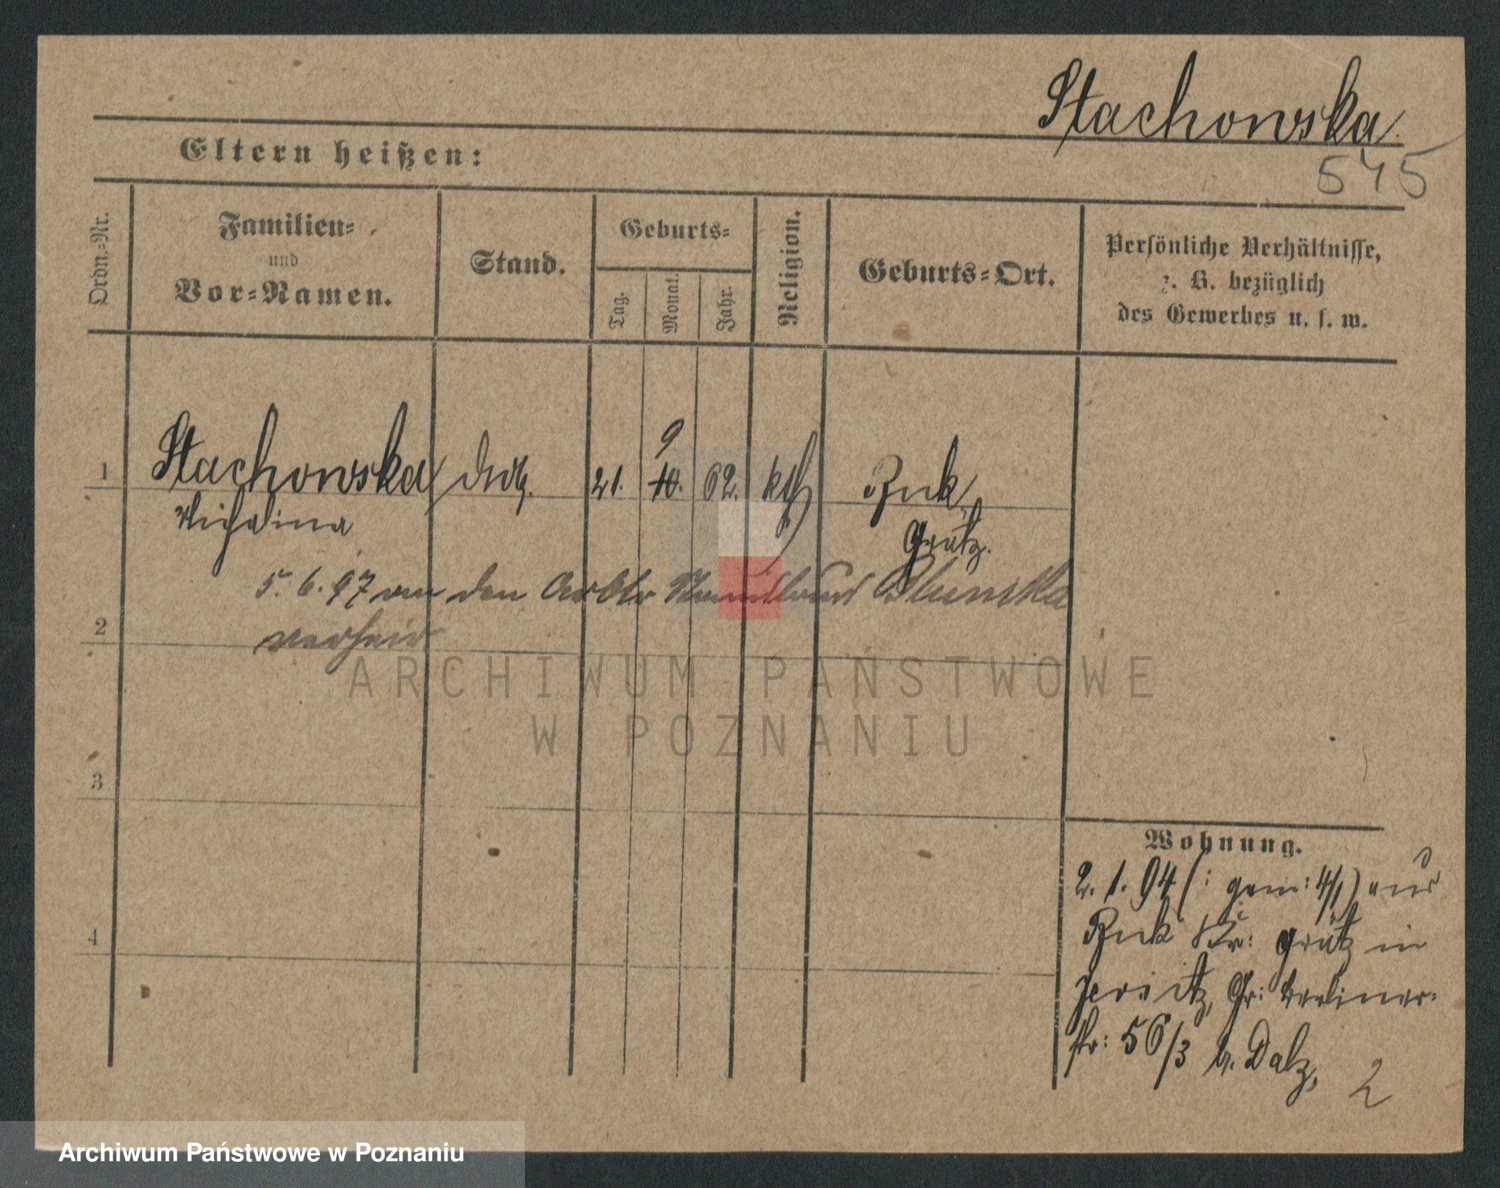 Stachowska
545
Eltern heißen:
Ordn.-Nr.
Familien-
und
Vor-Namen.
Stand.
Geburts-
Tag.
Monat.
Jahr.
Religion.
Geburts-Ort.
Persönliche Verhältnisse,
z. B. bezüglich
des Gewerbes u. s. w.
1 Stachowska 21. 9 10. 62. kth Buk,
Michalina Grätz.
5. 6. 97 an den Arbtr
2 verheir
3
4
Wohnung.
2. 1. 94 (: gem: 4/1) aus
Buk Kr: Grätz in
Jersitz, Gr: Berliner-
str: 56/3 b. Dalz,
2
ARCHIWUM PAŃSTWOWE
W POZNANIU
Archiwum Państwowe w Poznaniu